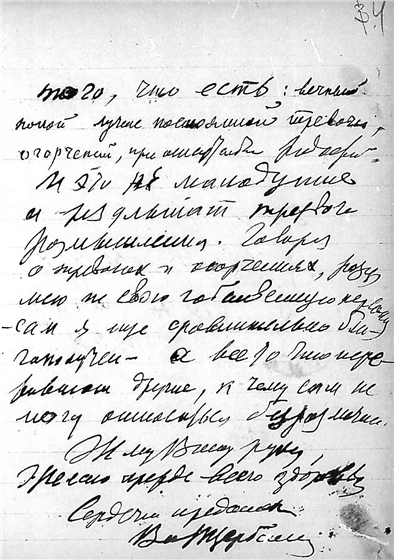 34
того, что есть: вечный
покой лучше постоянной тревоги,
огорчений, при
И это не малодушие
а результат трезвого
размышления. Говоря
о тревогах и огорчениях, разу
мею не свою собственную
- сам я еще сравнительно бла-
гополучен - а все то что пере-
живают другие, к чему сам не
могу относиться безразлично.
Жму Вашу руку,
Желаю прежде всего здоровья
Сердечно преданный
Вл Щербина